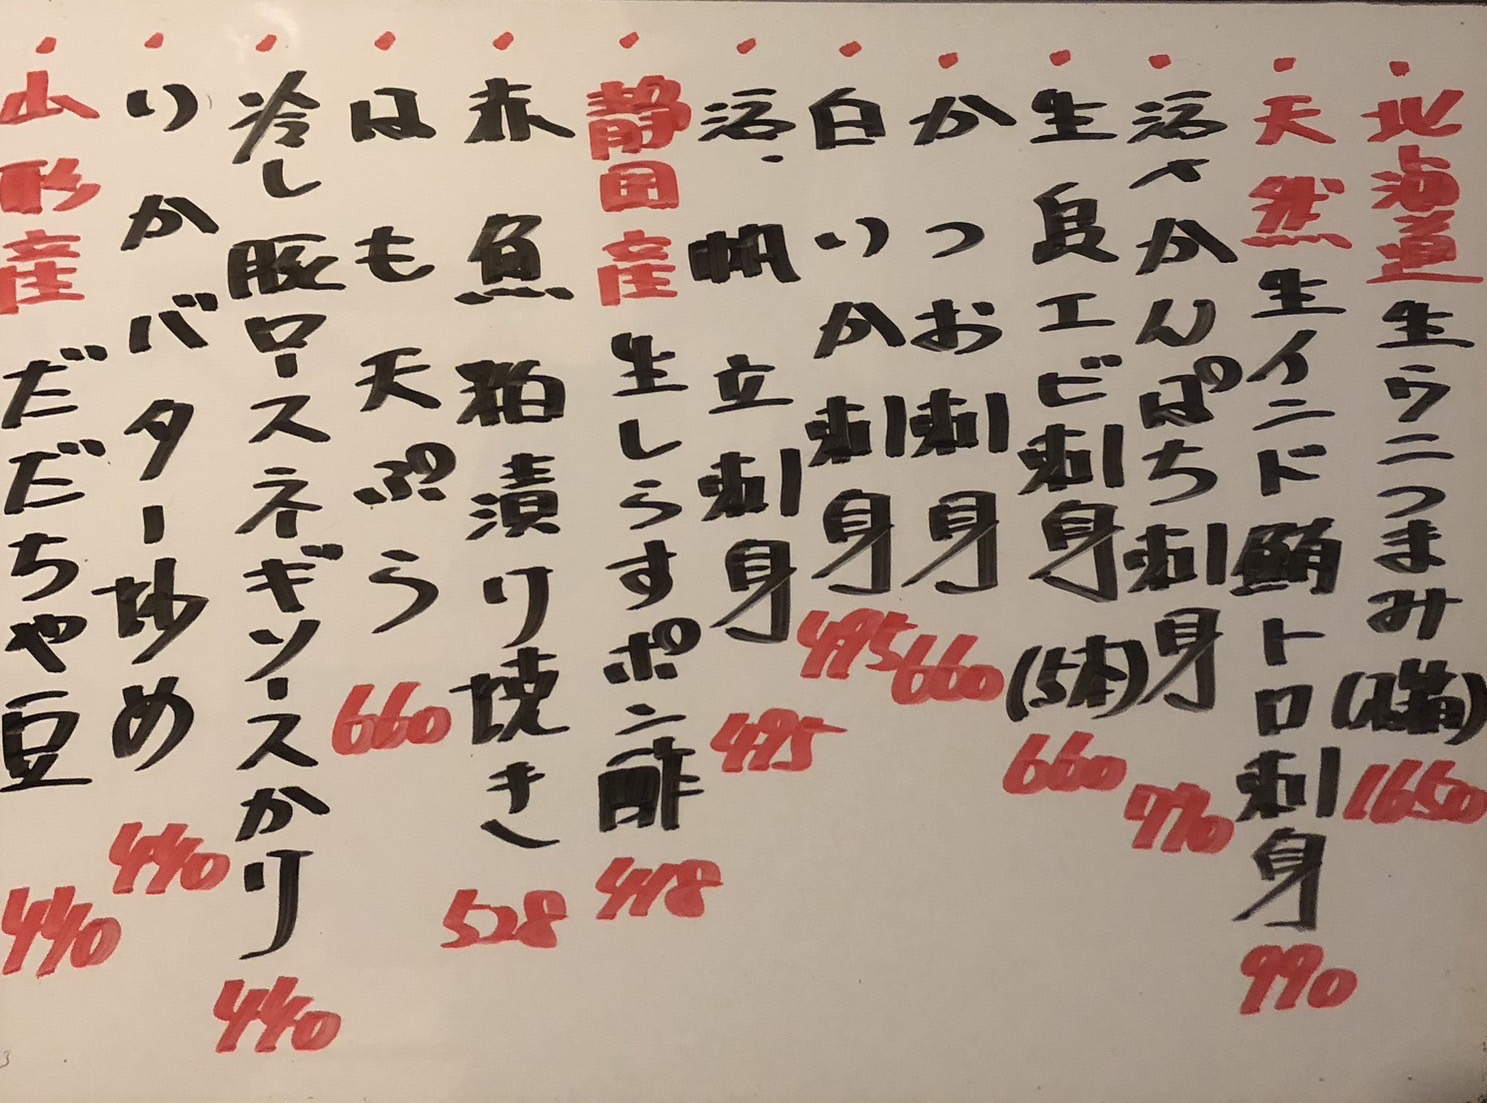 ・北海道生ウニつまみ 1650
・天然生インド鮪トロ刺身 990
・活〆かんぱち刺身 770
・生良エビ刺身(5本) 660
・かつお刺身 660
・白いか刺身 495
・活帆立刺身 495
・静岡産生しらすポン酢 418
・赤魚粕漬け焼き 528
・はも天ぷら 660
・冷し豚ロースネギソースかけ 440
・いかバター炒め 440
・山形産だだちゃ豆 440